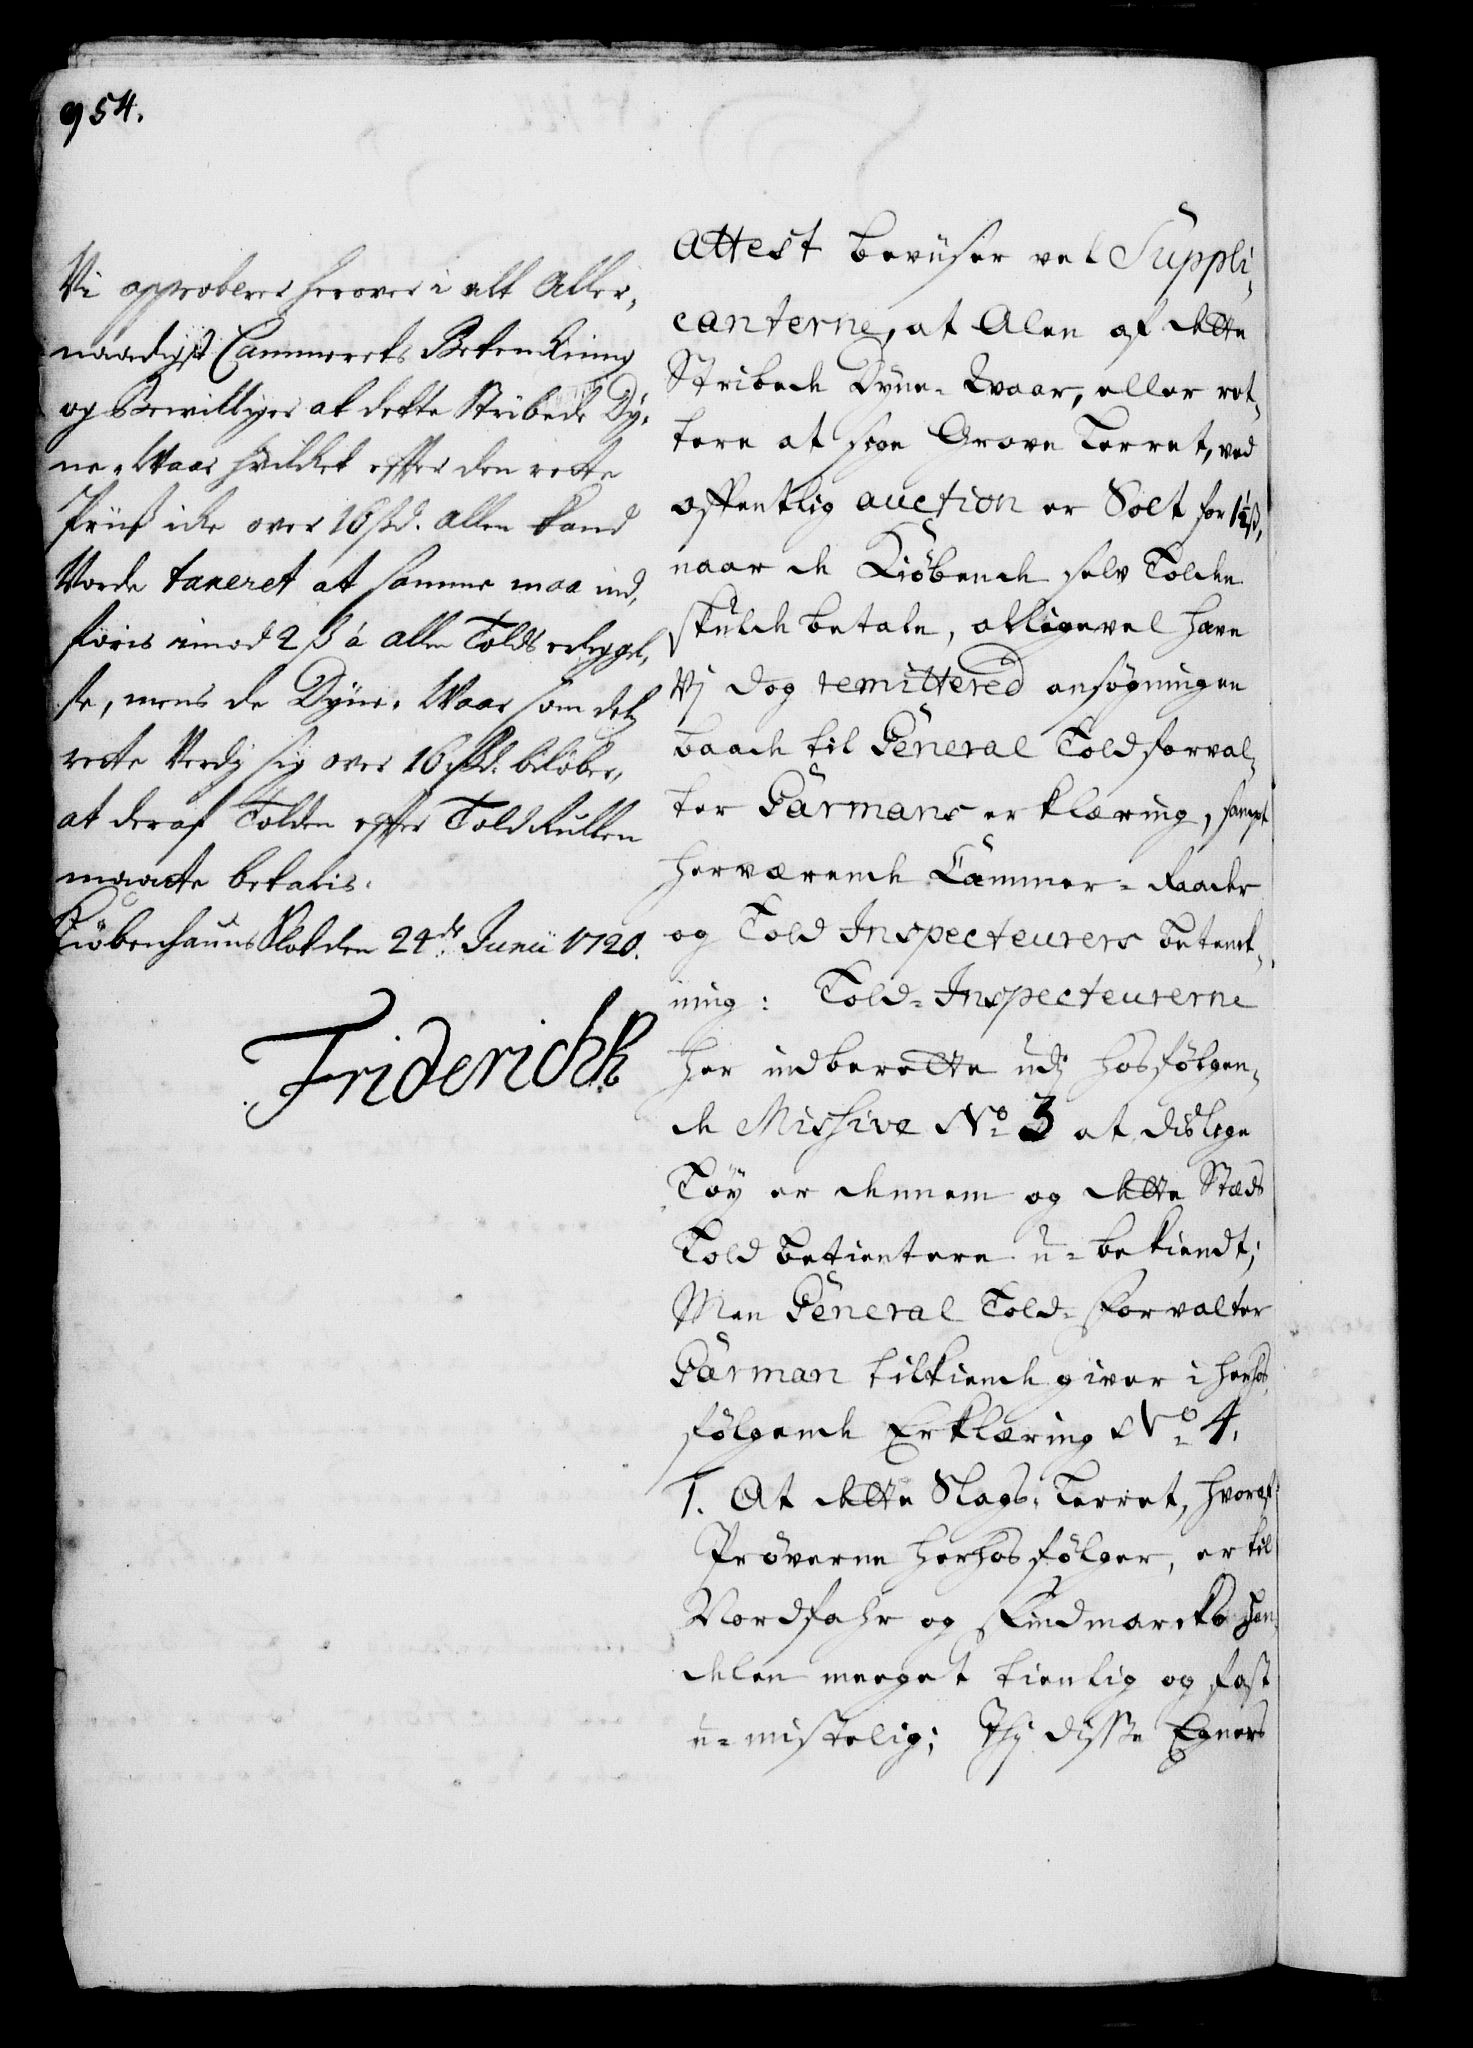 954.
Vi approberer herover i alt Aller,
naadigst Cammerets Betenckning
og Bewilliger at dette Stribede Dy,
ne=Waar hvilcket effter den rette
Priiß icke over 16 ßd. Allen kand
Vorde taxeret at samme maa ind,
føris imod 2 ß à Allen Tolds erleggel,
se, mens de Dyne=Waar som detz
rette Verdj sig over 16 ßd. beløber,
at deraf Tolden effter Toldrullen
maatte betalis.
Kiøbenhaffns Slot den 24de Junii 1720.
Friderich R
Attest beviiser vel Suppli,
canterne, at Alen af dette
Stribede Dyne=Waar, eller ret,
tere at sige Grove Lerret, ved
offentlig auction er Solt for 1½ß,
naar de Kiøbende selv Tolden
skulde betale, alligevel have
Vj dog remittered ansøgningen
baade til General Toldforval,
ter Gärmans erklæring, sampt
herværende Cammer=Raader
og Told Inspecteurers betenck,
ning: Told=Inspecteurerne
her indberette udj hosfølgen,
de Missive No 3 at dislige
Töy er dennem og dette Stæds
Told betientere u=bekiendt;
Men General Told=Forvalter
Gärman tilkiende giver i herhos,
følgende Erklæring No 4.
1. At dette Slags Lerret, hvoraf
Prøverne herhos følger, er til
Nordfahr og Findmarckshan,
delen meeget tienlig og fast
u=mistelig; Thj disse Egners